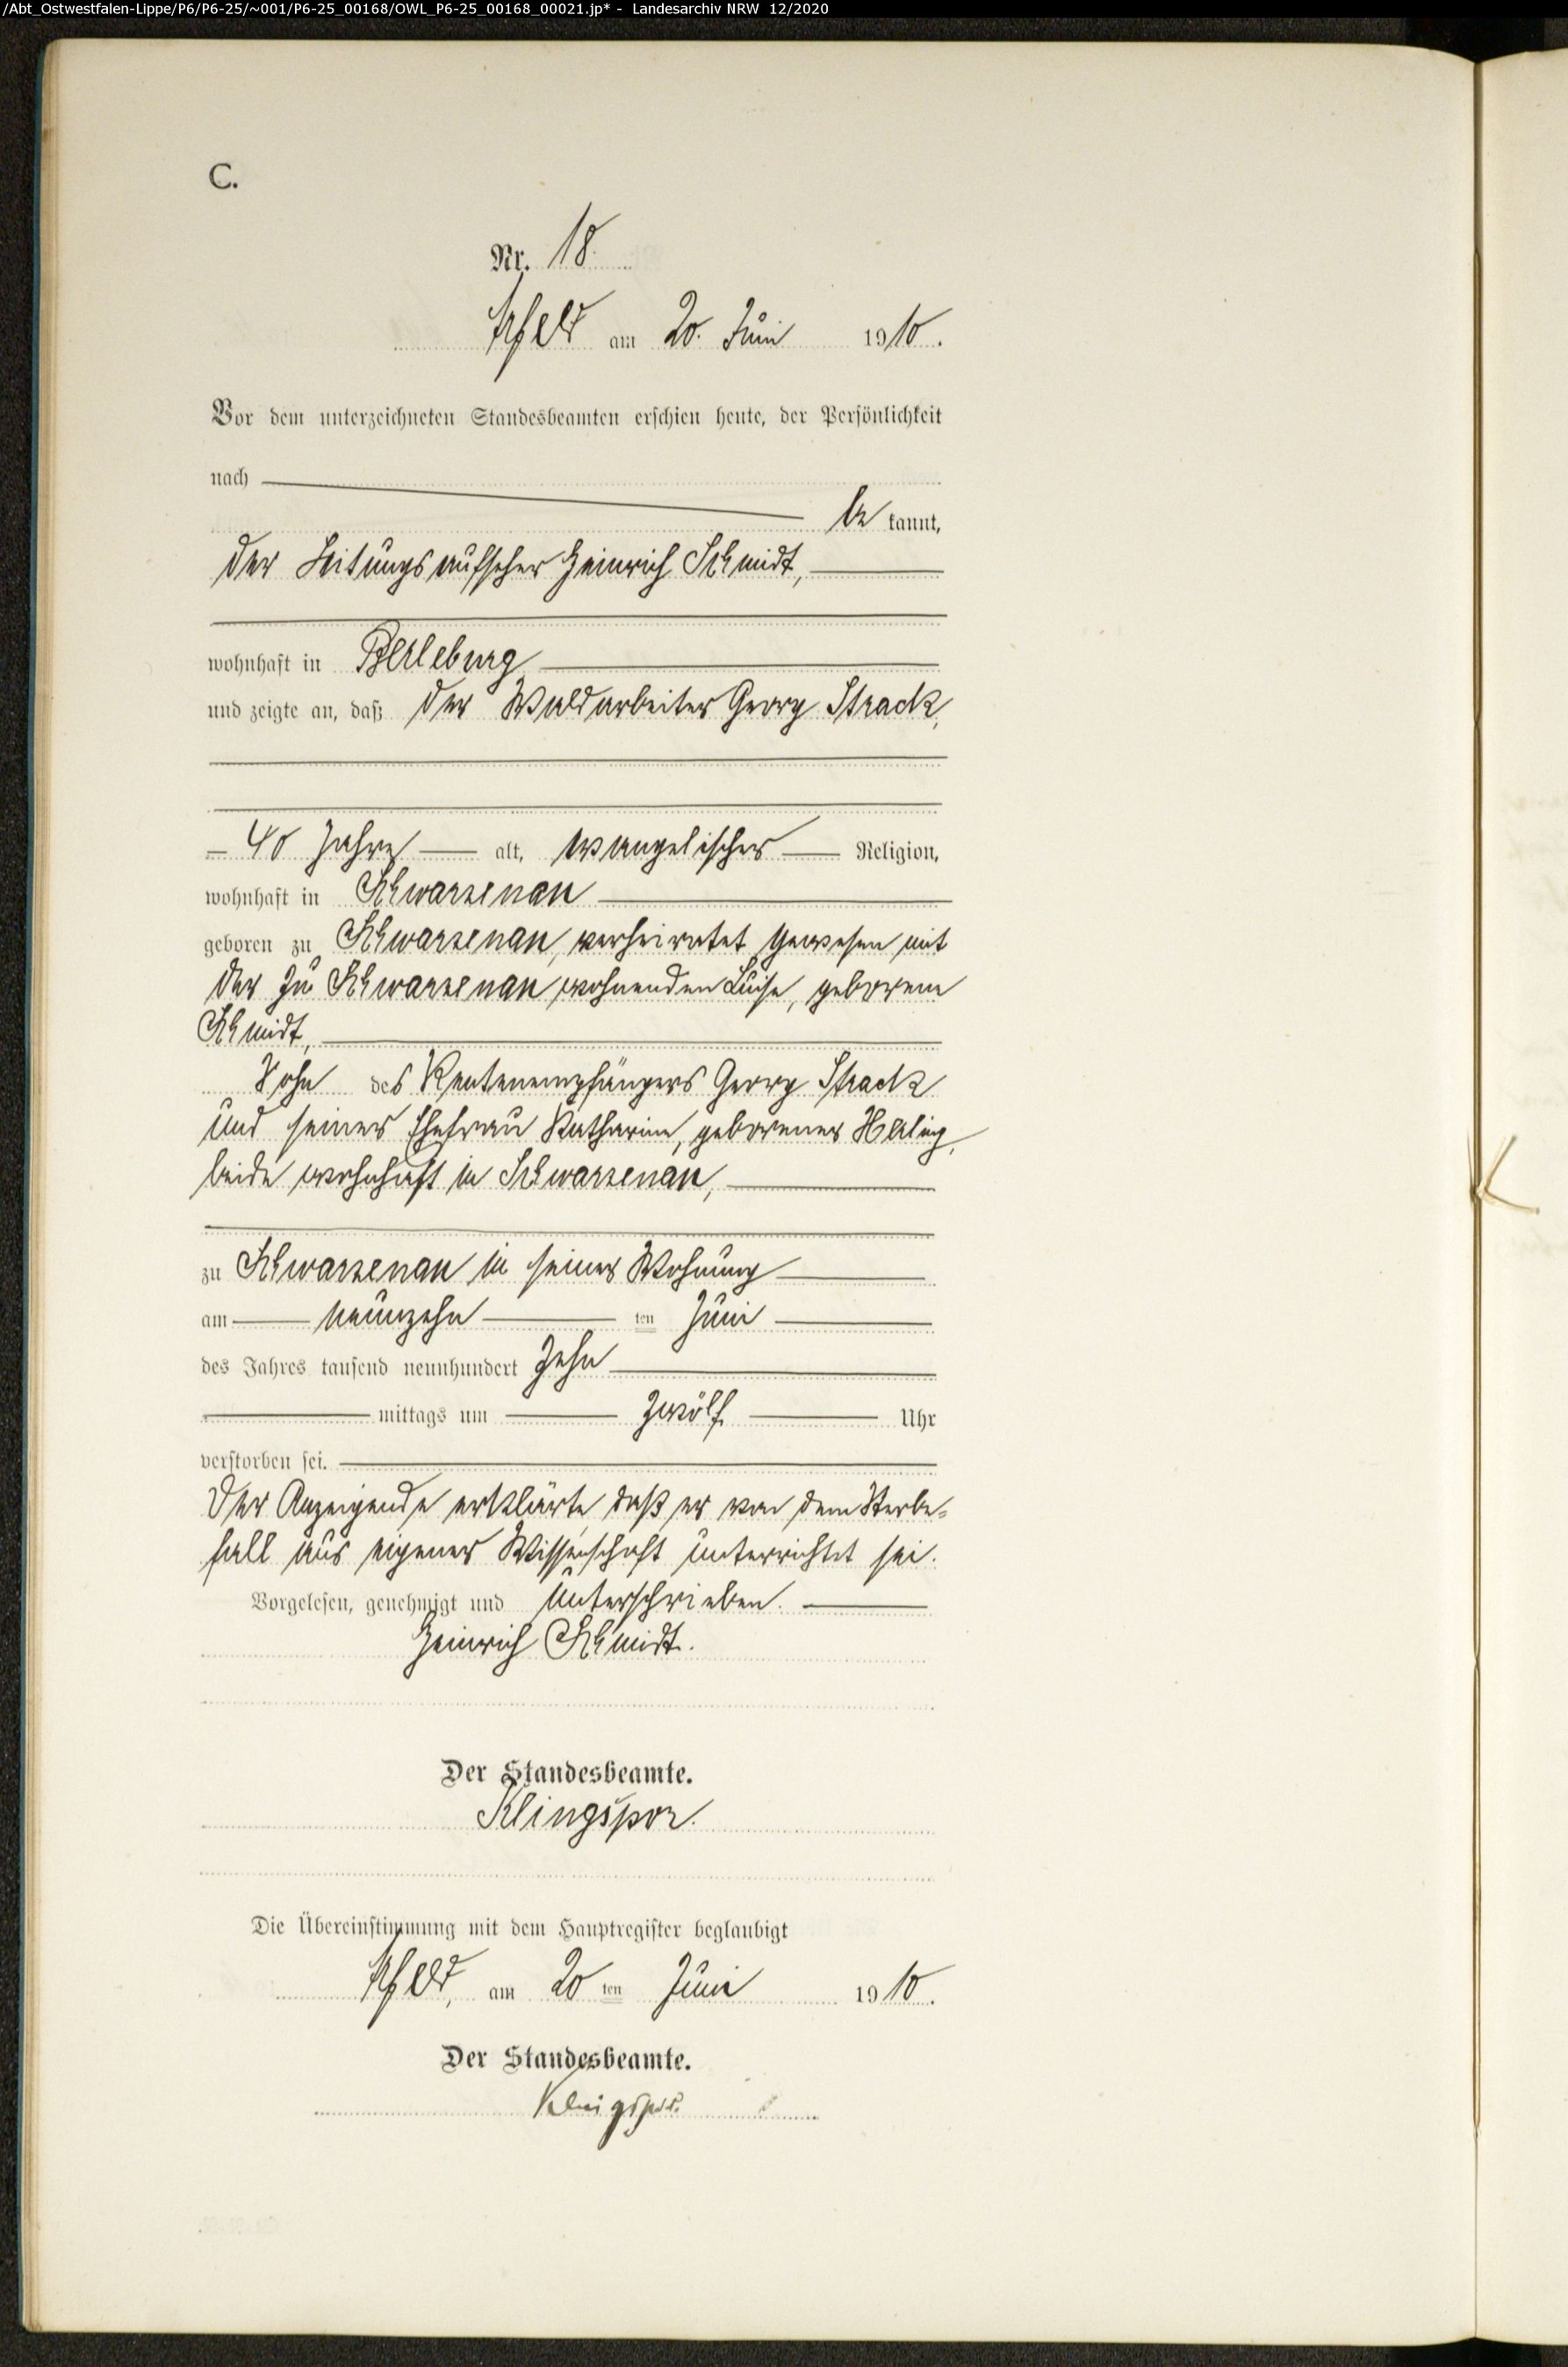 /Abt_Ostwestfalen-Lippe/P6/P6-25/~001/P6-25_00168/OWL_P6-25_00168_00021.jp* - Landesarchiv NRW 12/2020
C.
Nr. 18.
Arfeld am 20. Juni 1910.
Vor dem unterzeichneten Standesbeamten erschien heute, der Persönlichkeit
nach
be kannt,
der Leitungsaufseher Heinrich Schmidt,
wohnhaft in Berleburg
und zeigte an, daß der Waldarbeiter Georg Strack,
40 Jahre alt, evangelischer Religion,
wohnhaft in Schwarzenau
geboren zu Schwarzenau, verheiratet gewesen mit
der zu Schwarzenau wohnenden Luise, geborene
Schmidt,
Sohn des Rentenempfängers Georg Strack
und seiner Ehefrau Katharine, geborener
beide wohnhaft in Schwarzenau,
zu Schwarzenau in seiner Wohnung
am neunzehn ten Juni
des Jahres tausend neunhundert zehn
mittags um zwölf Uhr
verstorben sei.
Der Anzeigende erklärte daß er von dem Sterbe-
fall aus eigener Wissenschaft unterrichtet sei.
Vorgelesen, genehmigt und unterschrieben.
Heinrich Schmidt.
Der Standesbeamte.
Klingspor.
Die Übereinstimmung mit dem Hauptregister beglaubigt
Arfeld, am 20 ten Juni 1910.
Der Standesbeamte.
Klingspor.